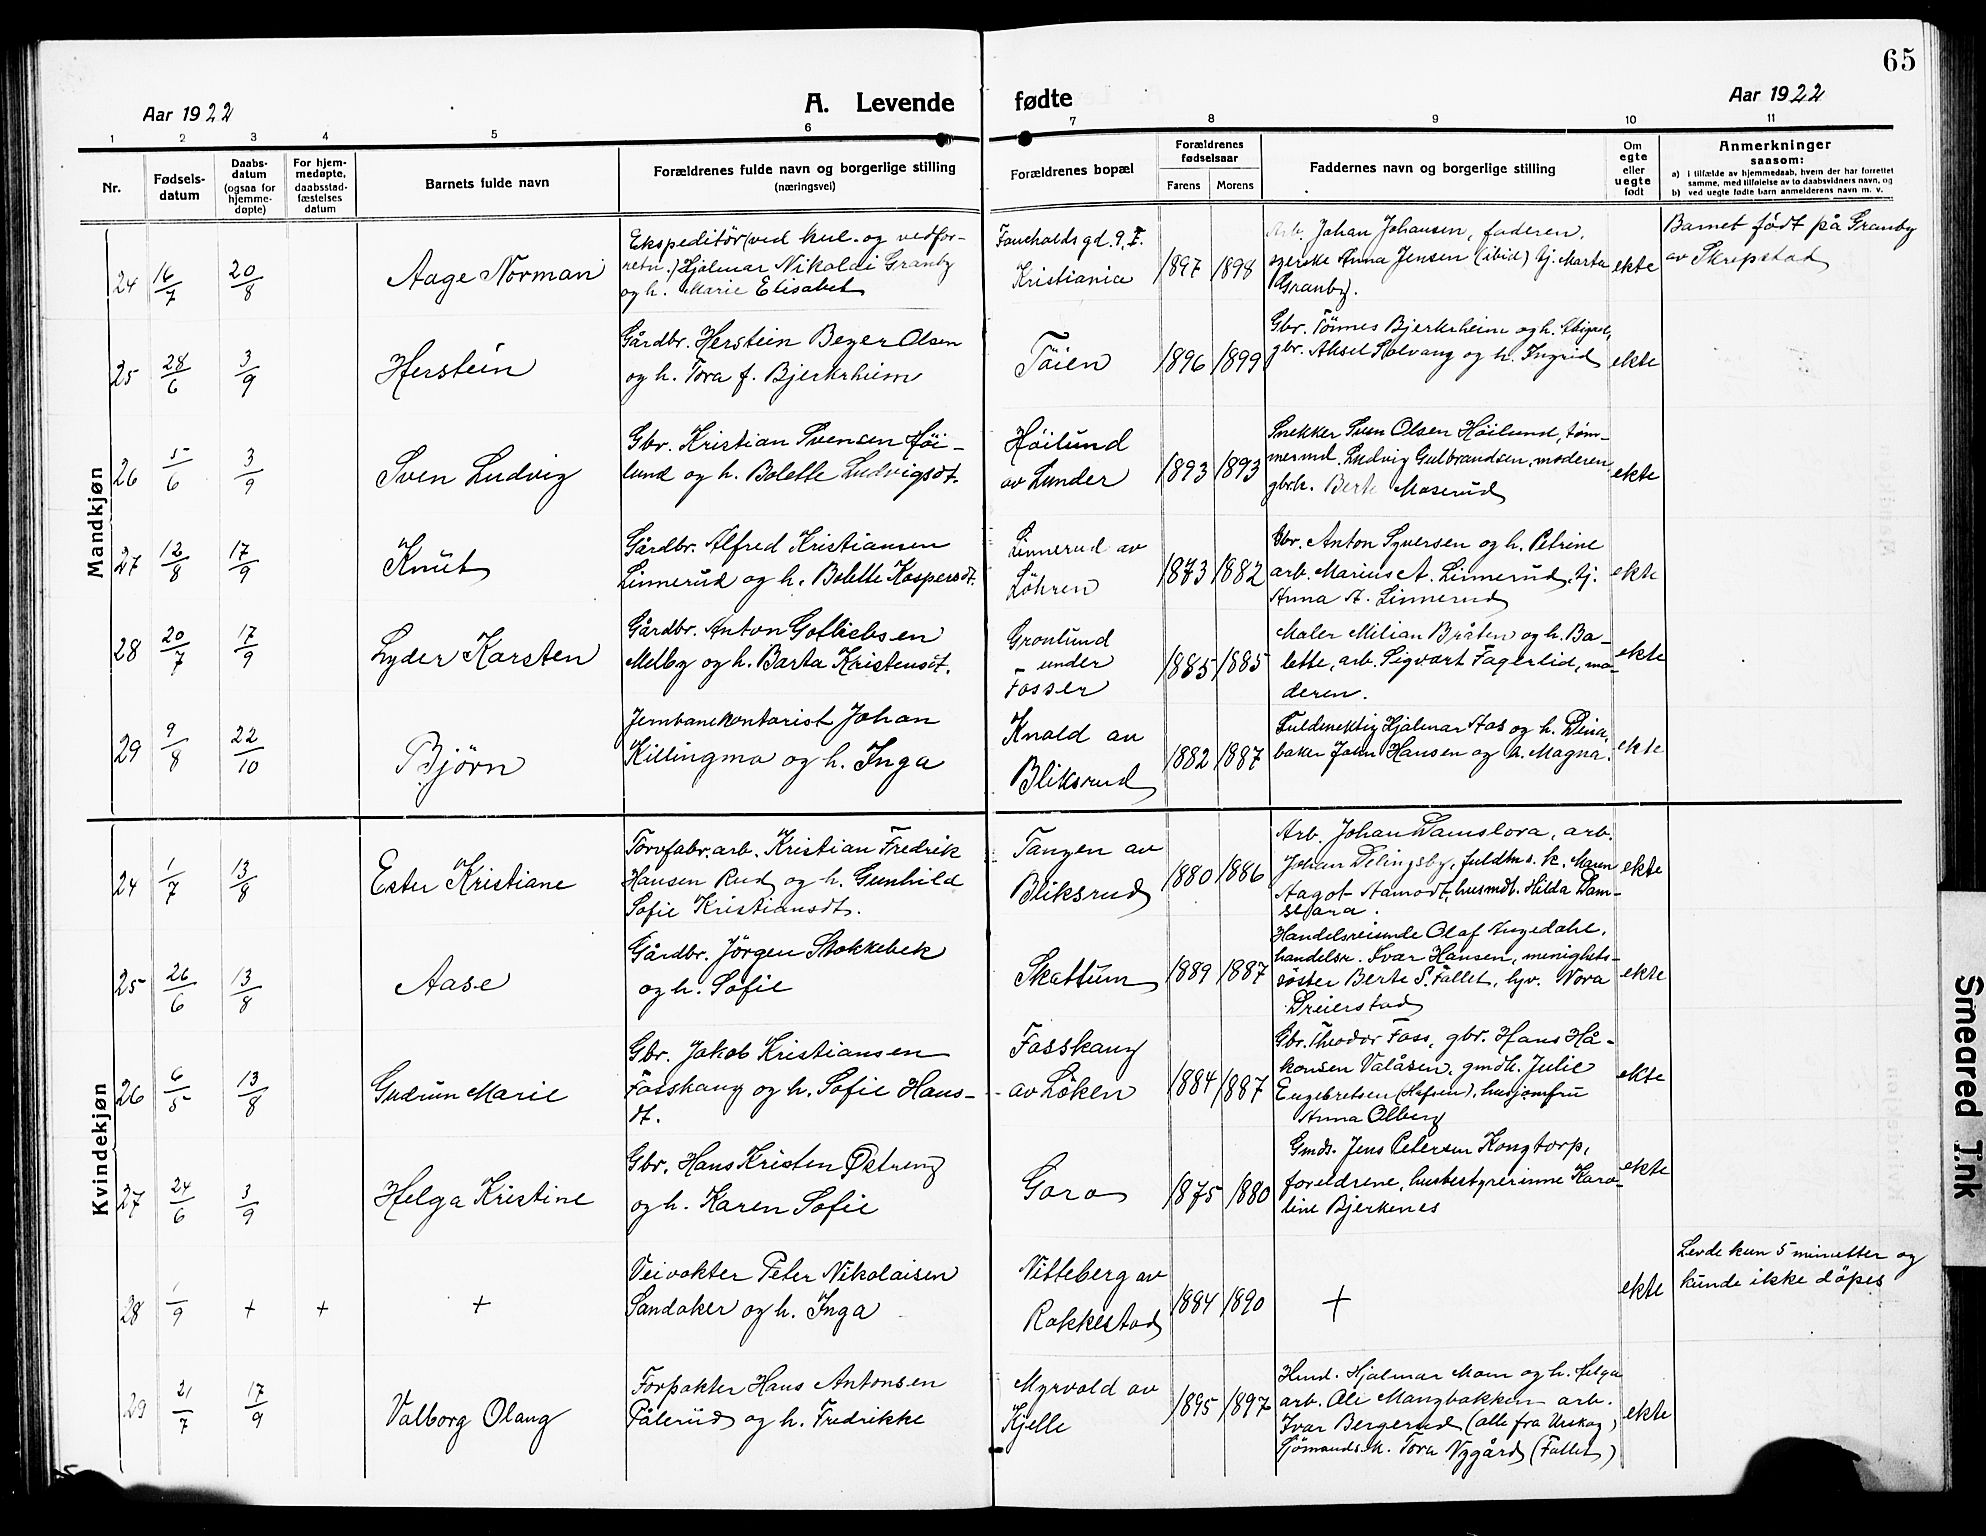 65
Aar 1922
A. Levende fødte
Aar 1922
1 2 3 4 5 6 7 8 9 10 11
Nr.
Fødsels-
datum
Daabs-
datum
(ogsaa for
hjemme-
døpte)
For hjem-
medøpte,
daabsstad-
fæstelses
datum
Barnets fulde navn
Forældrenes fulde navn og borgerlige stilling
(næringsvei)
Forældrenes bopæl
Forældrenes
fødselsaar
Farens
Morens
Faddernes navn og borgerlige stilling
Om
egte
eller
uegte
født
Anmerkninger
saasom:
a) i tilfælde av hjemmedaab, hvem der har forrettet
samme, med tilføielse av to daabsvidners navn, og
b) ved uegte født barn anmelderens navn m. v.
Mandkjøn
24 16/7 20/8 Aage Norman
Ekspeditör (ved kul. og vedfor-
retn.) Hjalmar Nikolai Granby
og h. Marie Elisabet
Kristiania
1897 1898
Arb. Johan Johansen, faderen,
Anna Jensen (ibid) tj. Marta
Granby.
ekte
Barnet født på Granby
av Skrepstad
25 28/6 3/9 Herstein
Gårdbr. Herstein Beyer Olsen
og h. Tora f. Bjerkrheim
Töien
1896 1899
Gbr. Tönnes Bjerkrheim og h.
gbr. Aksel Solvang og h. Ingrid
ekte
26 5/6 3/9 Sven Ludvig
Gbr. Kristian Svensen Höi-
lund og h. Bolette Ludvigsdt.
Höilund
av Lunder
1893 1893
Snekker Sven Olsen Höilund, töm-
mermd. Ludvig Gulbrandsen, moderen,
gbrh. Berte Moserud
ekte
27 12/8 17/9 Knut
Gårdbr. Alfred Kristiansen
Linnerud og h. Bolette Kaspersdt.
Linnerud av
Löhren
1873 1882
Gbr. Anton Syversen og h. Petrine
arb. Marius A. Linnerud, tj.
Anna A. Linnerud
ekte
28 20/7 17/9 Lyder Karsten
Gårdbr. Anton Gotliebsen
Melby og h. Barta Kristensdt.
Gronlund
under
Fosser
1885 1885
Maler Milian Bråten og h. Bo-
lette, arb. Sigvart Fagerlid, mo-
deren.
ekte
29 9/8 22/10 Björn
Jernbanekontorist Johan
Killingmo og h. Inga
Knold av
Bliksrud
1882 1887
Fuldmektig Hjalmar Aas og h. Dina,
baker John Hansen og h. Magna.
ekte
Kvindekjøn
24 1/7 13/8 Ester Kristiane
Torvfabr.arb. Kristian Fredrik
Hansen Rud og h. Gunhild
Sofie Kristiansdt.
Tangen av
Bliksrud
1880 1886
Arb. Johan Damslora, arb.
Johan Delingsby, fuldm.s k. Maren
Aagot Aamodt, husmdt. Hilda Dam-
slora.
ekte
25 26/6 13/8 Aase
Gårdbr. Jörgen Stokkebek
og h. Sofie
Skattum
1889 1887
Handelsreisende Olaf Ingedahl,
handelsr. Ivar Hansen, minighets-
söster Berte S. Fallet, hjv. Nora
Dreierstad
ekte
26 6/5 13/8 Gudrun Marie
Gbr. Jakob Kristiansen
Fosskaug og h. Sofie Hans-
dt.
Fosskaug
av Löken
1884 1887
Gbr. Theodor Foss, gbr. Hans Hå-
konsen Valåsen, gmdh. Julie
Engebretsen (Hofsen), husjomfru
Anna Olberg
ekte
27 24/6 3/9 Helga Kristine
Gbr. Hans Kristen Østreng
og h. Karen Sofie
Gora
1875 1880
Gmds. Jens Petersen Kongtorp,
foreldrene, husbestyrerinne Karo-
line Bjerkenes
ekte
28 1/9 + + +
Veivokter Peter Nikolaisen
Sandaker og h. Inga
Vitteberg av
Rakkestad
1884 1890
+
ekte
Levde kun 5 minutter og
kunde ikke döpes
29 21/7 17/9 Valborg Olaug
Forpakter Hans Antonsen
Pålerud og h. Fredrikke
Myrvold av
Kjelle
1895 1897
Hjalmar Mom og h. Helga
arb. Ole Mangbakken arb.
Ivar Bergerud (alle fra Urskog)
Sjömands.k. Tora Nygård (Fallet)
ekte
Smeared Ink